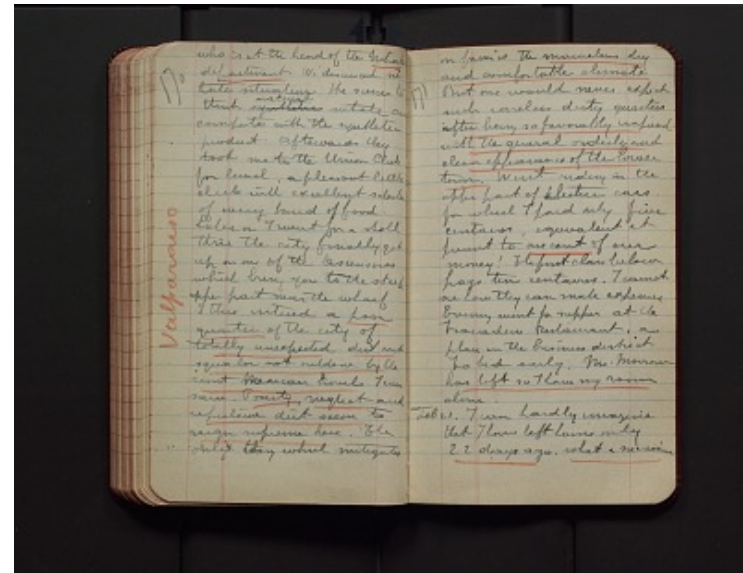 who is at the head of the
department. We discussed
trate situation. He seems to
think synthetic nitrate can
compete with the synthetic
product. Afterwards they
took me to the Union Club
for lunch, a pleasant little
club with excellent selection
of every kind of food.
Later on I went for a stroll
thru the city finally got
up on one of the ascensores
which bring you to the steep
upper part near the wharf
I thus entered a poor
quarter of the city of
totally unexpected dirt and
squalor not outdone by the
worst Mexican towns I ever
saw. Poverty, neglect and
repulsive dirt seem to
reign supreme here. The
only thing which mitigates
Valparaiso
171
on fami is the marvelous dry
and comfortable climate.
But one would never expect
such careless dirty quarters
after being so favorably impressed
with the general orderly and
clean appearance of the lower
town. Went riding in the
upper part of electric cars
for which I paid only five
centavos, equivalent at
present to one cent of our
money! The first class below
pays ten centavos. I cannot
see how they can make expenses
Evening went for supper at the
Restaurant, a
place in the business district
To bed early. Mr. Morrow
has left so I have my room
alone.
Feb 1. I can hardly imagine
that I have left home only
22 days ago. What a